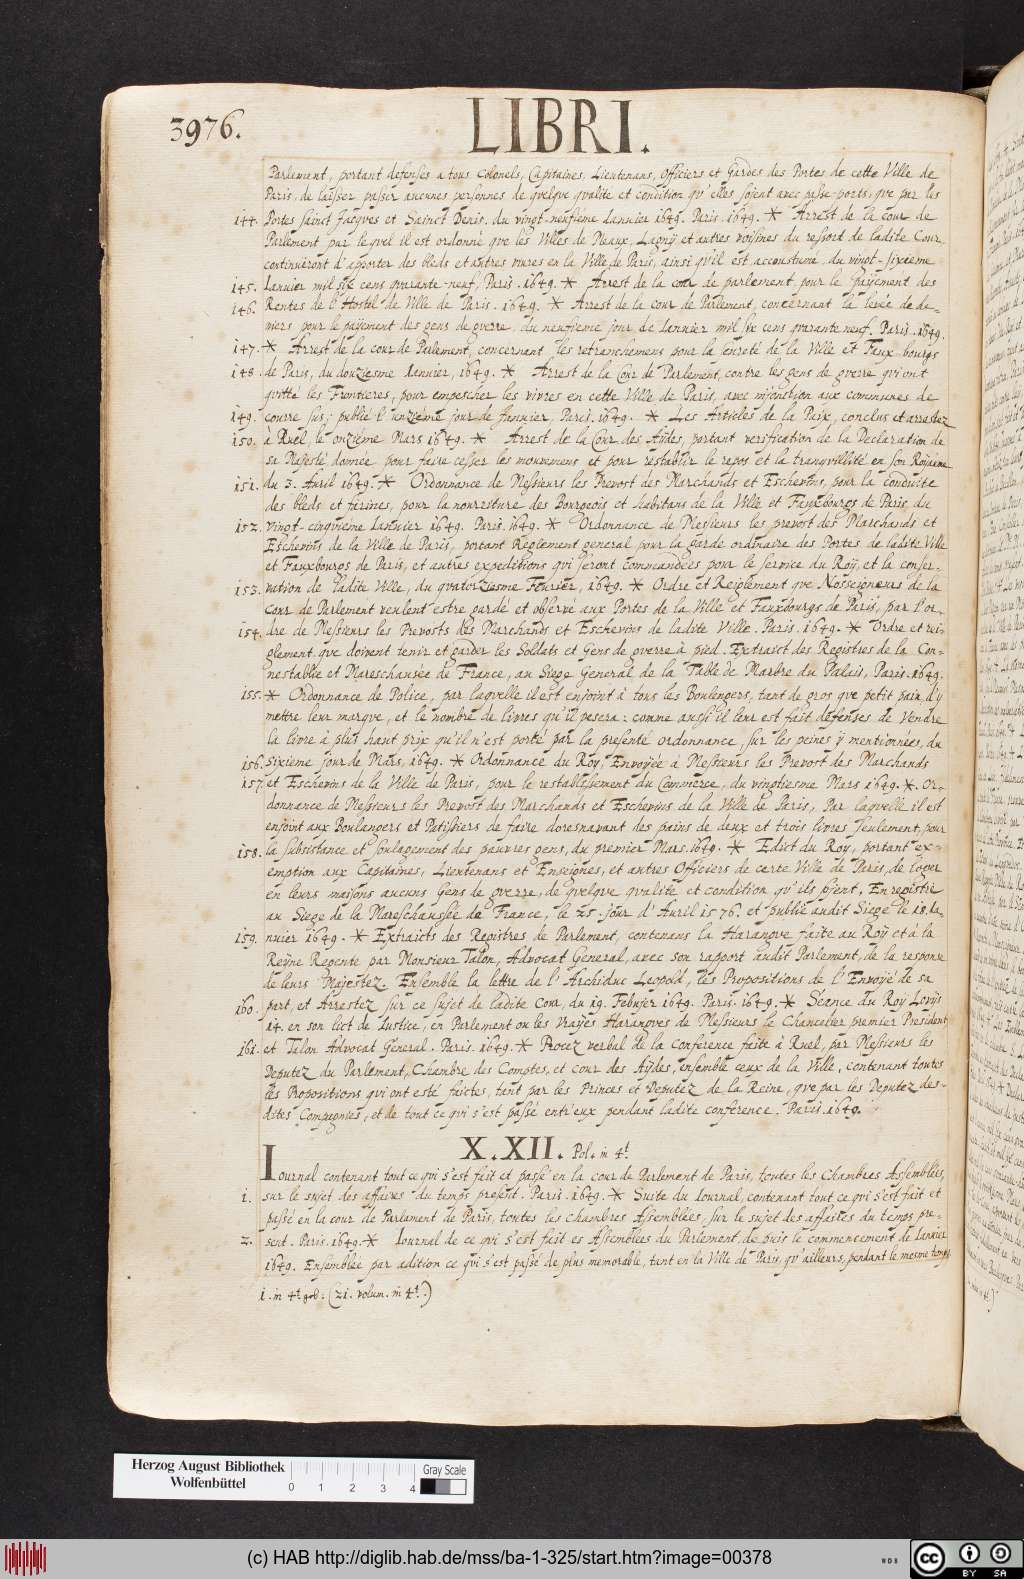 3976.
LIBRI.
Parlement, portant defenses a tous Colonels, Capitaines, Lieutenans, Officiers et Gardes des Portes de cette Ville de
Paris, de laisser passer aucunes personnes de quelque qualite et condition qu'elles soient avec passe-ports, que par les
144. Portes sainct Jacques et Sainct Denis, du vingt-neufieme Ianuier 1649. Paris. 1649. * Arrest de la cour de
Parlement par lequel il est ordonné que les Villes de Meaux, Lagny et autres voisines du ressort de ladite Cour,
continueront d'apporter des bleds et autres viures en la Ville de Paris, ainsi qu'il est accoustumé, du vingt-sixieme
145. Ianuier mil six cens quarante-neuf, Paris. 1649. * Arrest de la cour de parlement, pour le payement des
146. Rentes de l'Hostel de Ville de Paris. 1649. * Arrest de la cour de Parlement, concernant la levée de de-
niers pour le payement des gens de guerre, du neufieme jour de Ianuier mil six cens quarante neuf. Paris. 1649.
147. * Arrest de la cour de Parlement, concernant les retranchemens pour la seureté de la Ville et Faux-bourgs
148. de Paris, du douziesme Ianuier, 1649. * Arrest de la Cour de Parlement, contre les gens de guerre qui ont
quitté les Frontieres, pour empescher les vivres en cette Ville de Paris, avec injonction aux communes de
149. courre sus; publié l'unzieme jour de Jannier, Paris. 1649. * Les Articles de la Paix, conclus et arrestez
150. à Ruel, le onzième Mars 1649. * Arrest de la Cour des Aydes, portant verification de la Declaration de
sa Majesté donnée pour faire cesser les mouvemens et pour restablir le repos et la tranquillité en son Royaume
151. du 3. Auril 1649. * Ordonnance de Messieurs les Prevost des Marchands et Eschevins, pour la conduite
des bleds et farines, pour la nourriture des Bourgeois et habitans de la Ville et Fauxbourgs de Paris, du
152. vingt-cinquieme Ianuier 1649. Paris. 1649. * Ordonnance de Messieurs les prevost des Marchands et
Eschevins de la Ville de Paris, portant Reglement general pour la garde ordinaire des Portes de ladite Ville
et Fauxbourgs de Paris, et autres expeditions qui seront commandées pour le service du Roy, et la conser-
153. vation de ladite Ville, du quatorziesme Feurier, 1649. * Ordre et Reiglement que Nosseigneurs de la
Cour de Parlement veulent estre gardé et observé aux Portes de la Ville et Fauxbourgs de Paris, par l'or-
154. dre de Messieurs les Prevosts des Marchands et Eschevins de ladite Ville. Paris. 1649. * Ordre et rei-
glement que doivent tenir et garder les Soldats et Gens de guerre à pied. Extraict des Registres de la Con-
nestablie et Mareschausée de France, au Siege General de la Table de Marbre du Palais, Paris. 1649.
155. * Ordonnance de Police, par laquelle il est enjoint à tous les Boulengers, tant de gros que petit pain, d'y
mettre leur marque, et le nombre de livres qu'il pesera: comme aussi il leur est fait defenses de Vendre
la livre à plus haut prix qu'il n'est porté par la presenté ordonnance, sur les peines y mentionnées, du
156. Sixieme jour de Mars, 1649. * Ordonnance du Roy, Envoyée à Messieurs les Prevost des Marchands
157. et Eschevins de la Ville de Paris, pour le restablissement du Commerce, du vingtiesme Mars 1649. *. Or-
donnance de Messieurs les Prevost des Marchands et Eschevins de la Ville de Paris, Par laquelle il est
enjoint aux Boulangers et Patissiers de faire doresnavant des pains de deux et trois livres seulement, pour
158. la subsistance et soulagement des pauvres gens, du premier Mars. 1649. * Edict du Roy, portant ex-
emption aux Capitaines, Lieutenans et Enseignes, et autres Officiers de cette Ville de Paris, de loger
en leurs maisons aucuns Gens de guerre, de quelque qualité et condition qu'ils sojent. Enregistré
au Siege de la Mareschaussée de France, le 25. jour d'Auril 1576. et publié audit Siege le 18. Ia-
159. nuier 1649. * Extraicts des Registres de Parlement, contenans la Harangue faite au Roy et à la
Reyne Regente par Monsieur Talon, Advocat General, avec son rapport audit Parlement, de la response
de leurs Majestez. Ensemble la lettre de l'Archiduc Leopold, les Propositions de l'Envoyé de sa
160. part, et Arrestez sur ce sujet de ladite Cour, du 19. Febujer 1649. Paris. 1649. * Séance du Roy Louys
14. en son lict de Iustice, en Parlement ou les Vrayes Harangues de Messieurs le Chancelier premier President
161. et Talon Advocat General. Paris. 1649. * Procez verbal de la Conference faite à Ruel, par Messieurs les
Deputez du Parlement, Chambre des Comptes, et cour des Aydes, ensemble ceux de la Ville, contenant toutes
les Propositions qui ont esté faictes, tant par les Princes et Deputez de la Reine, que par les Deputez des-
dites Compagnies, et de tout ce qui s'est passé entr'eux pendant ladite conference. Paris. 1649.
X.XII. Pol. in 4t.
Iournal contenant tout ce qui s'est fait et passé en la cour de Parlement de Paris, toutes les Chambres Assemblées,
1. sur le sujet des affaires du temps present. Paris. 1649. * Suite du Iournal, contenant tout ce qui s'est fait et
passé en la cour de Parlament de Paris, toutes les chambres Assemblées, sur le sujet des affaires du temps pre-
2. sent. Paris. 1649. * Iournal de ce qui s'est fait es Assemblées du Parlement, depuis le commencement de Ianuier
1649. Ensemblée par adition ce qui s'est passé de plus memorable, tant en la Ville de Paris, qu'ailleurs, pendant le mesme temps.
1. in 4t. (21. volum. in 4t.)
Herzog August Bibliothek
Wolfenbüttel
0 1 2 3 4
Gray Scale
(c) HAB http://diglib.hab.de/mss/ba-1-325/start.htm?image=00378
WDB
cc BY SA